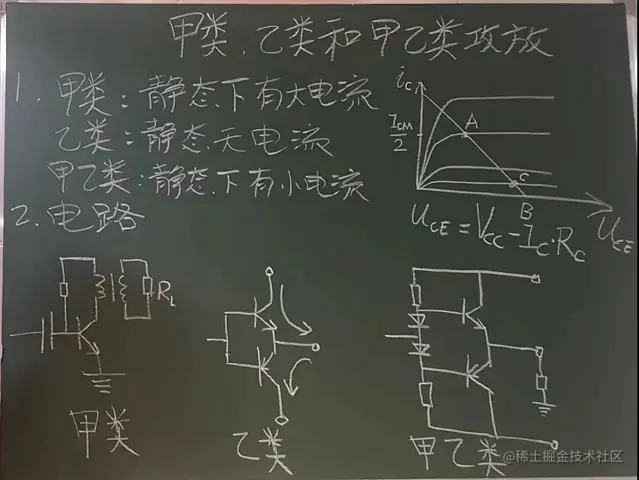 甲类、乙类和甲乙类攻放
1. 甲类：静态下有大电流
乙类：静态无电流
甲乙类：静态下有小电流
2. 电路
ic
ICM/2
A
C
B
UCE
UCE=VCC-IC·RC
RL
甲类
乙类
甲乙类
@稀土掘金技术社区